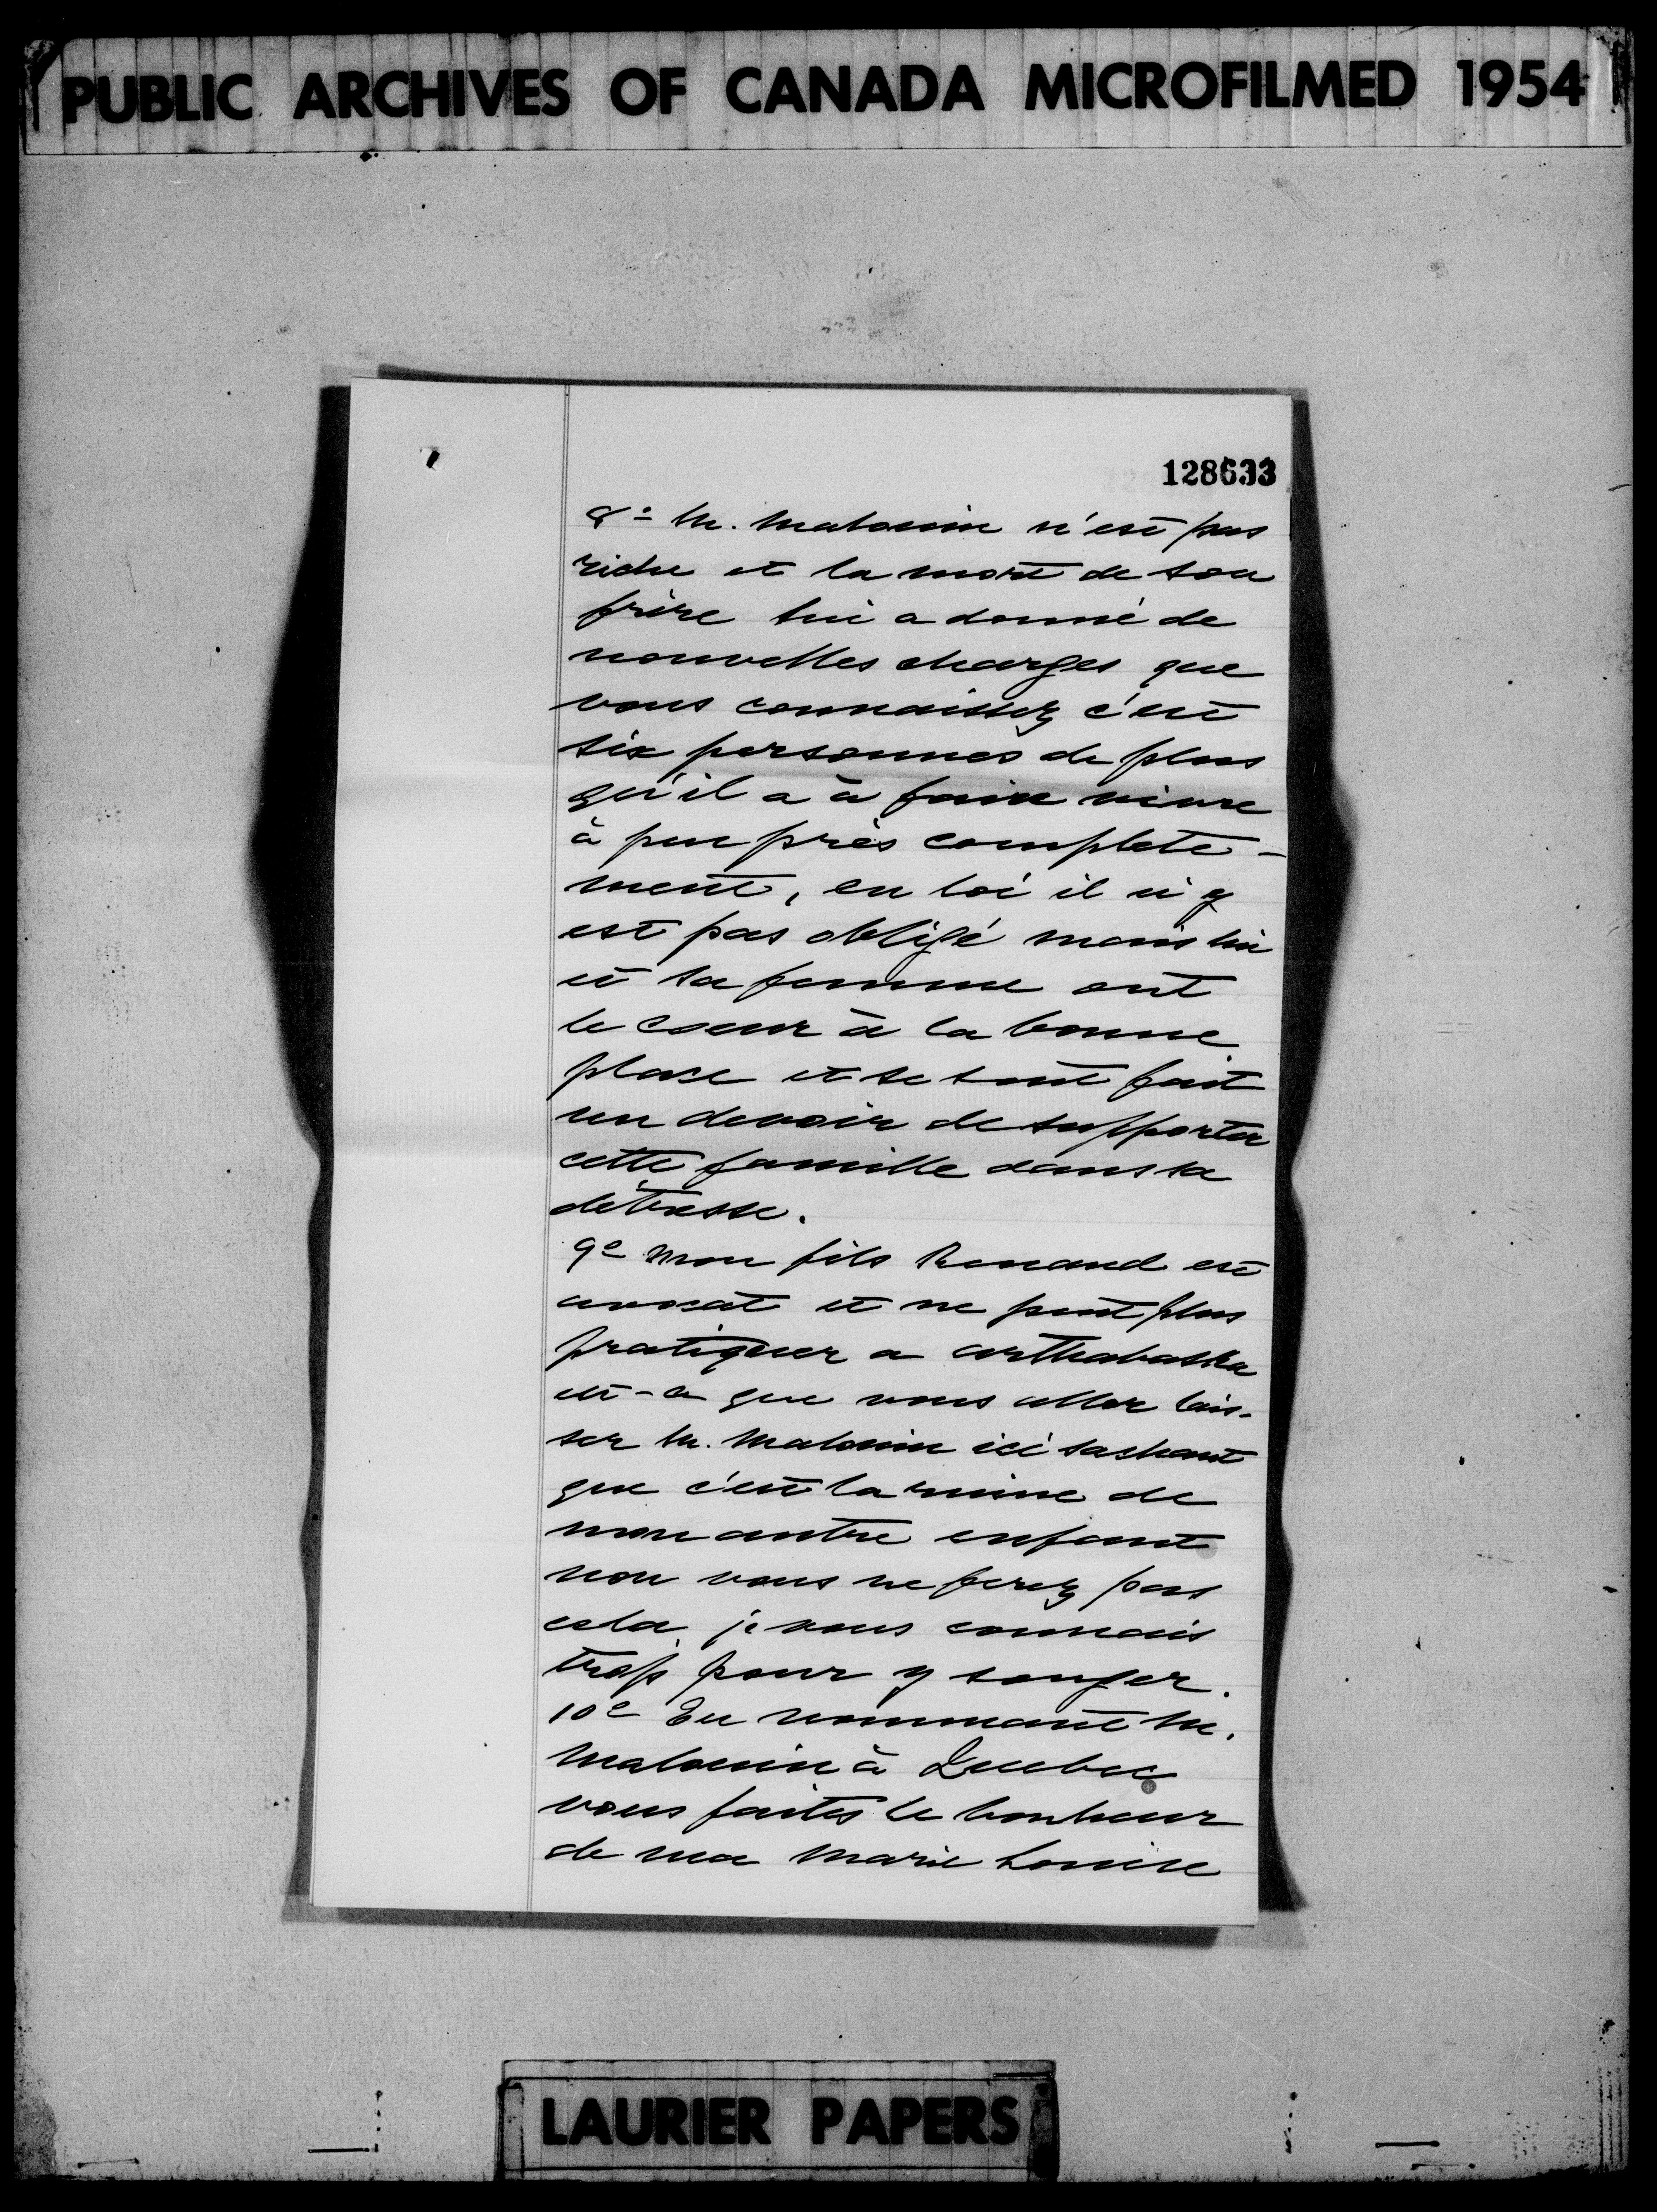 PUBLIC ARCHIVES OF CANADA MICROFILMED 1954
128633
8º M. Malouin n'est pas
riche et la mort de son
frère lui a donné de
nouvelles charges que
vous connaissez c'est
six personnes de plus
qu'il a à faire vivre
à peu près complete-
ment, en loi il n'y
est pas obligé mais lui
et sa femme ont
le coeur à la bonne
place et se sont fait
un devoir de supporter
cette famille dans sa
détresse.
9e Mon fils Renaud est
avocat et ne peut plus
pratiquer a arthabaska
est-ce que vous aller lais-
ser M. Malouin ici sachant
que c'est la ruine de
mon autre enfant
non vous ne ferez pas
cela je vous connais
trop pour y songer.
10e En nommant M.
Malouin à Quebec
vous faites le bonheur
de ma Marie Louise
LAURIER PAPERS